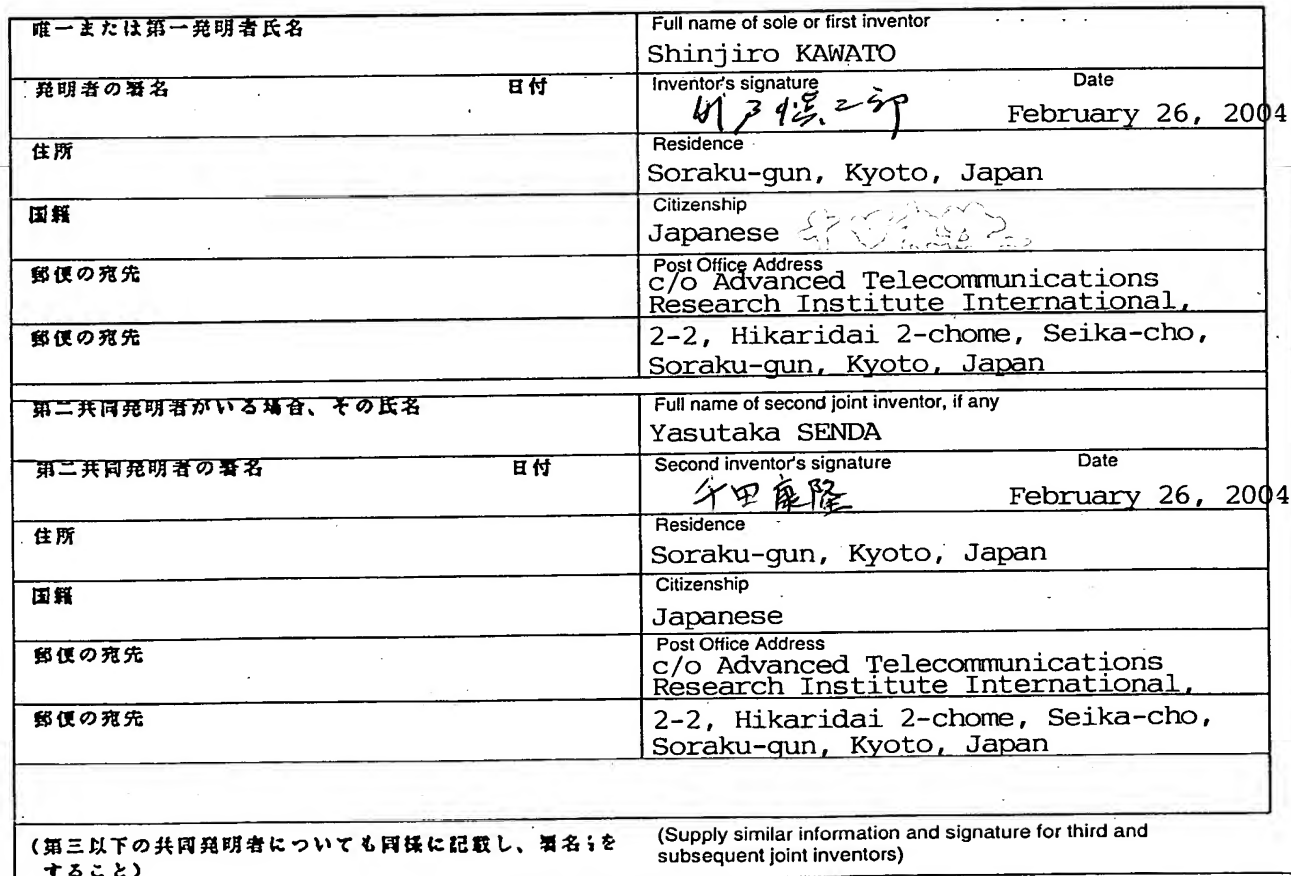 唯一または第一発明者氏名
Full name of sole or first inventor
Shinjiro KAWATO
発明者の署名 日付
Inventor's signature Date
川戸慎二郎 February 26, 2004
住所
Residence
Soraku-gun, Kyoto, Japan
国籍
Citizenship
Japanese
郵便の宛先
Post Office Address
c/o Advanced Telecommunications
Research Institute International,
郵便の宛先
2-2, Hikaridai 2-chome, Seika-cho,
Soraku-gun, Kyoto, Japan
第二共同発明者がいる場合、その氏名
Full name of second joint inventor, if any
Yasutaka SENDA
第二共同発明者の署名 日付
Second inventor's signature Date
千田康隆 February 26, 2004
住所
Residence
Soraku-gun, Kyoto, Japan
国籍
Citizenship
Japanese
郵便の宛先
Post Office Address
c/o Advanced Telecommunications
Research Institute International,
郵便の宛先
2-2, Hikaridai 2-chome, Seika-cho,
Soraku-gun, Kyoto, Japan
(第三以下の共同発明者についても同様に記載し、署名を
すること)
(Supply similar information and signature for third and
subsequent joint inventors)